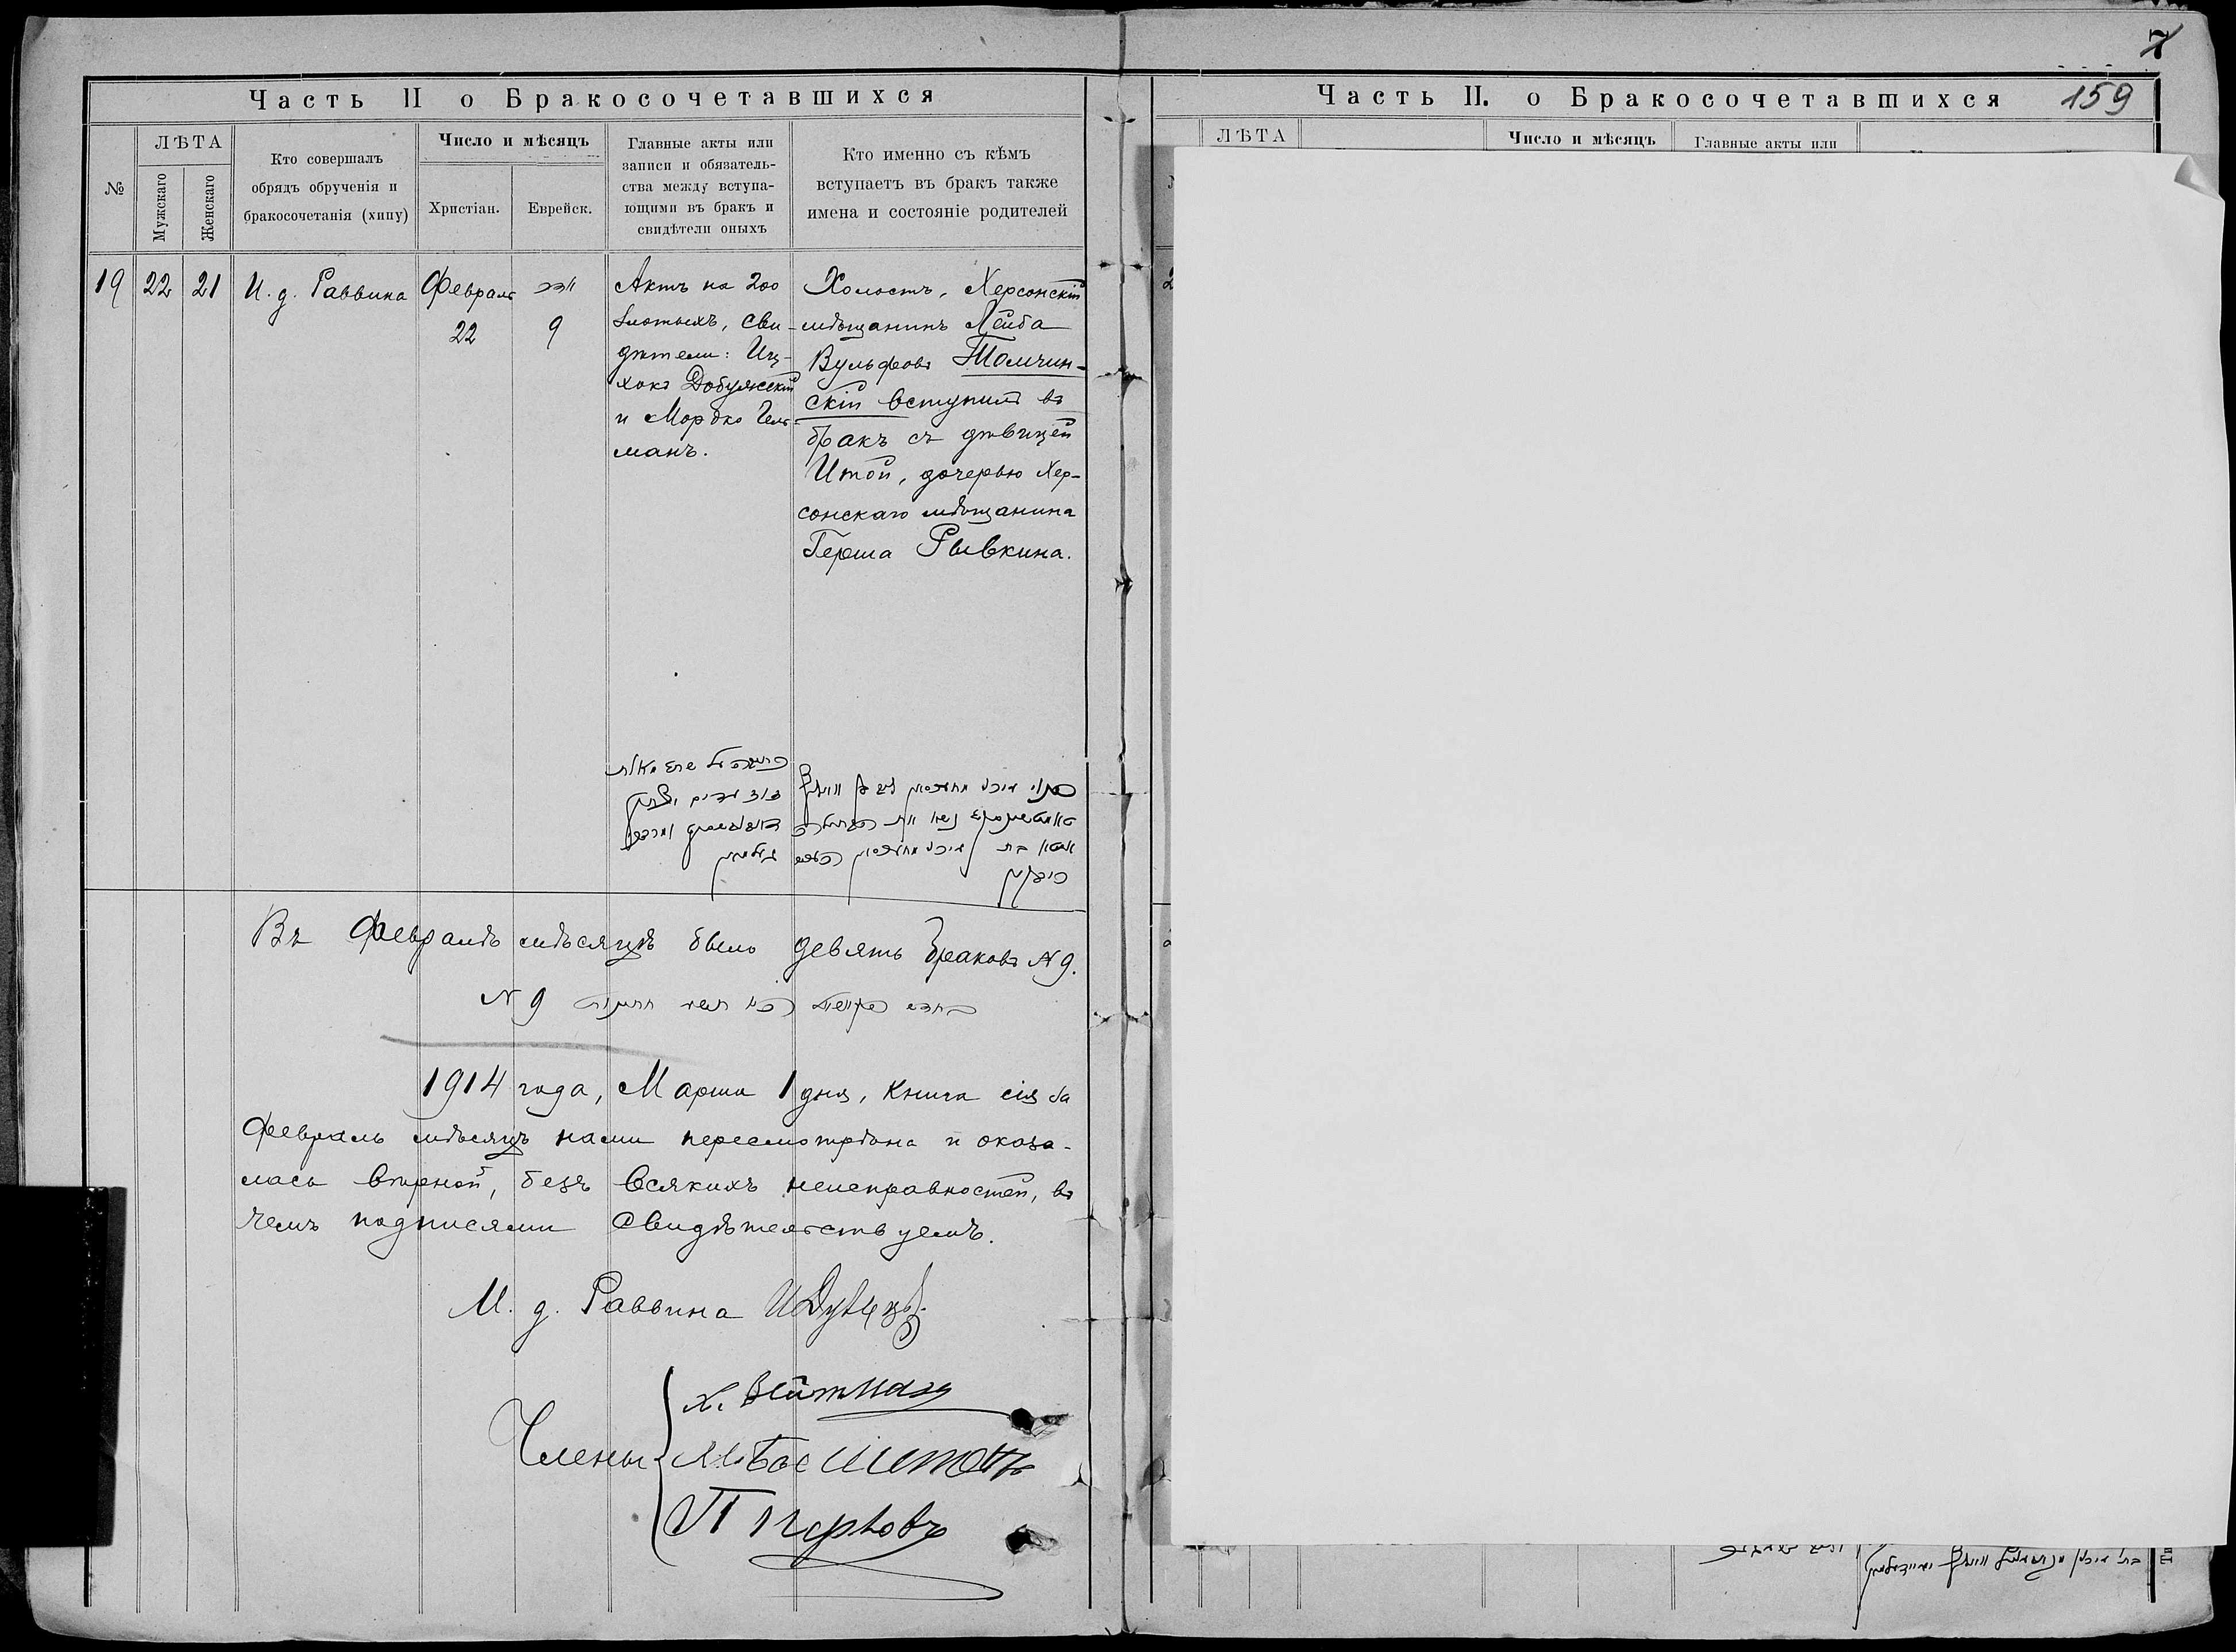 Часть II о Бракосочетавшихся
№
ЛѢТА
Мужскаго
Женскаго
Кто совершалъ
обрядъ обрученія и
бракосочетанія (хипу)
Число и мѣсяцъ
Христіан.
Еврейск.
Главные акты или
записи и обязатель-
ства между вступа-
ющими въ бракъ и
свидѣтели оныхъ
Кто именно съ кѣмъ
вступаетъ въ бракъ также
имена и состояніе родителей
19
22
21
И. д. Раввина
Февраль
22
אדר
9
Актъ на 200
злотыхъ, сви-
дѣтели: Иц-
хокъ Добужскій
и Мордко Гель-
манъ.
Холостъ, Херсонскій
мѣщанинъ Лейба
Вульфовъ Толчин-
скій вступилъ въ
бракъ съ дѣвицей
Итой, дочерью Хер-
сонскаго мѣщанина
Герша Рывкина.
Въ Февралѣ мѣсяцѣ было девять браковъ №9.
№ 9
1914 года, Марта 1 дня, Книга сія за
Февраль мѣсяцъ нами пересмотрѣна и оказа-
лась вѣрной, безъ всякихъ неисправностей, въ
чемъ подписями свидѣтельствуемъ.
И. д. Раввина
Члены
Х. Вейтман
7
Часть II. о Бракосочетавшихся
159
ЛѢТА
Число и мѣсяцъ
Главные акты или